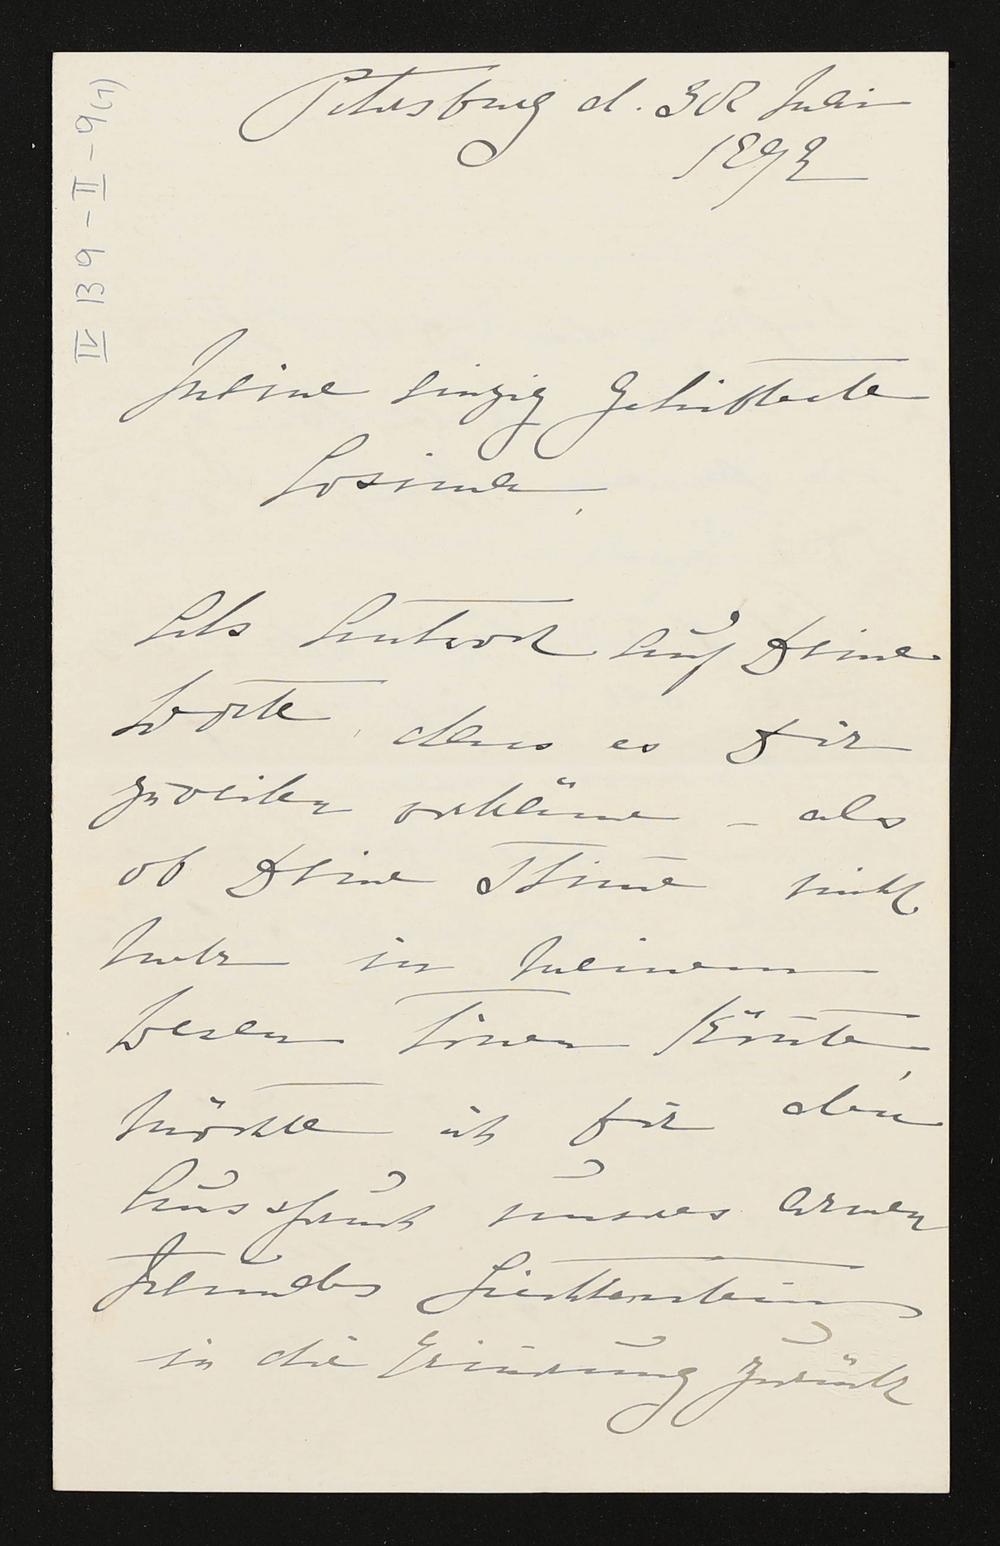 IV B 9 - II - 9 (1)
Petersburg d. 30 Mai
1892
Meine einzig Geliebteste
Cosima,
Als Antwort auf Deine
Worte, dass es Dir
zuweilen vorkäme – als
ob Deine Stimme nicht
mehr in meinem
Wesen tönen könnte,
möchte ich Dir den
Ausspruch unseres armen
Freundes Liechtenstein
in die Erinnerung zurück